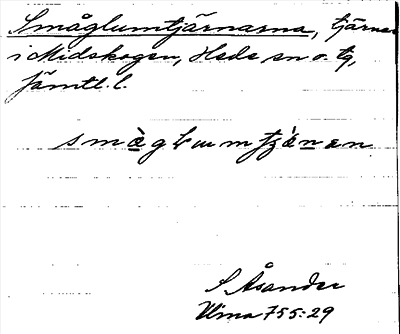 Småglumtjärnarna, tjärnar
i Midskogen, Hede sn o. tg,
Jämtl. l.
S. Åsander
Ulma 755:29